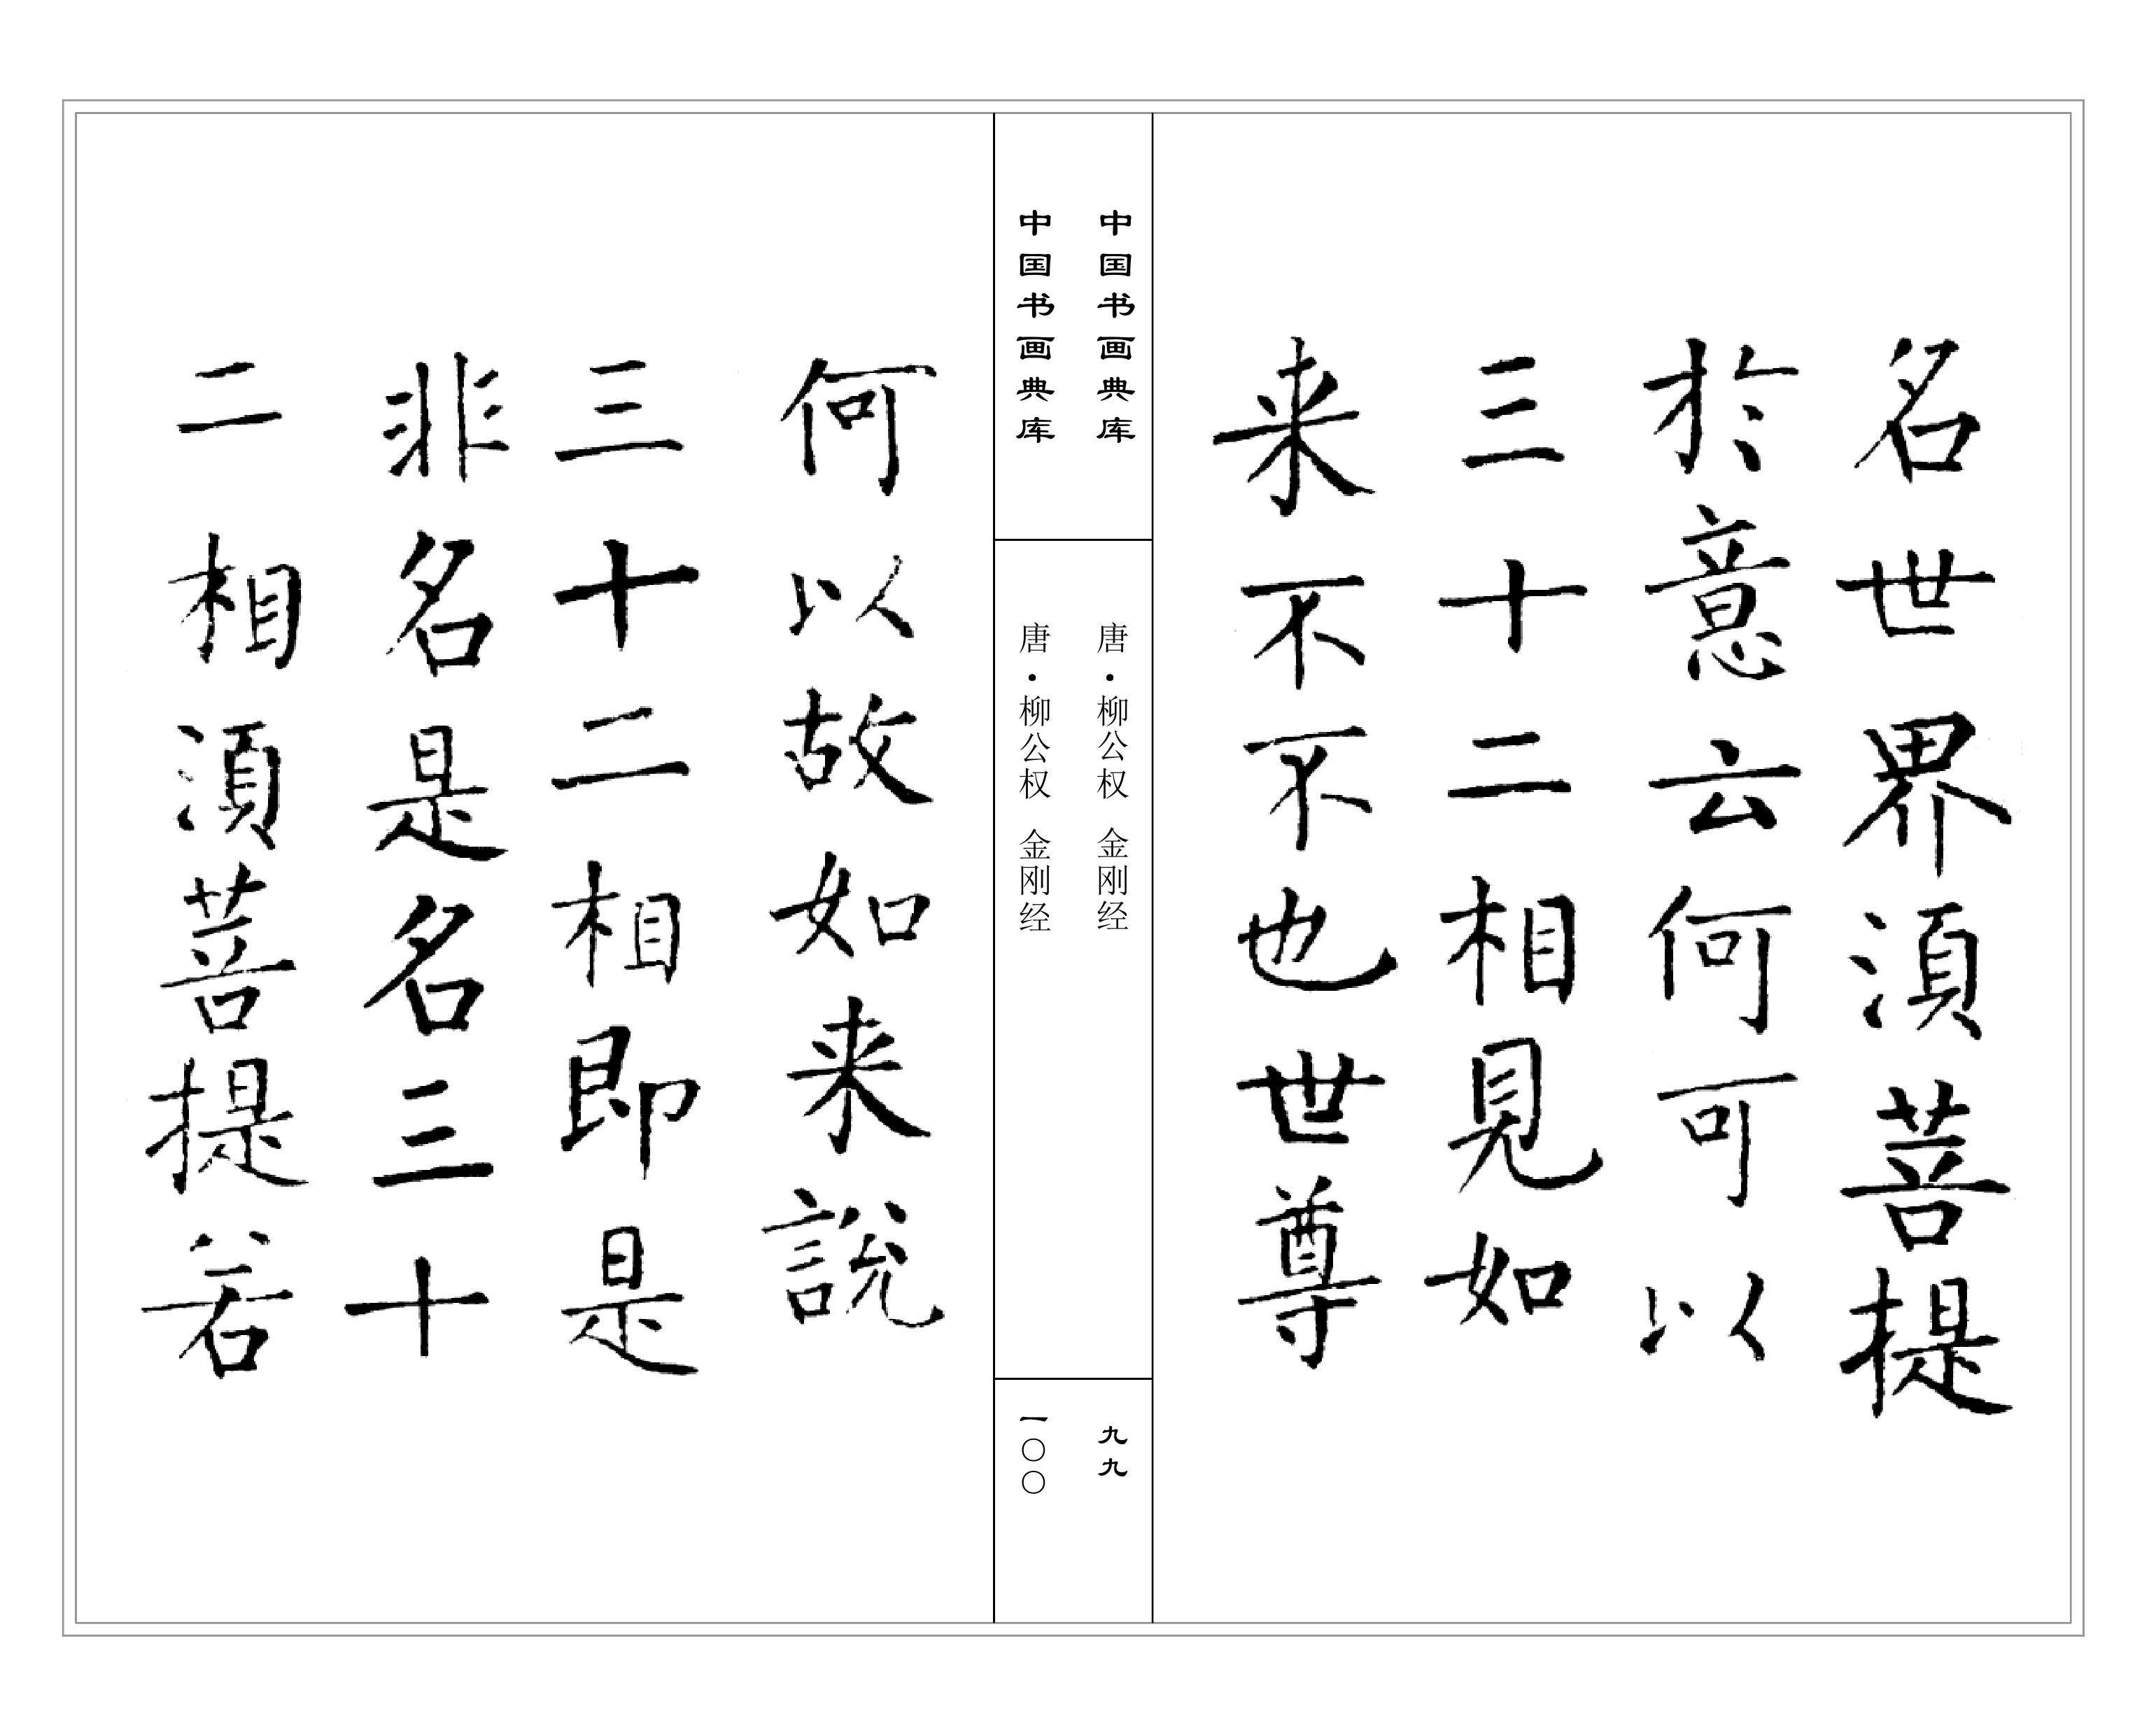 名世界湏菩提
於意云何可以
三十二相見如
来不不也世尊
中国书画典库
唐·柳公权 金刚经
九九
中国书画典库
唐·柳公权 金刚经
一〇〇
何以故如来說
三十二相即是
非名是名三十
二相湏菩提若